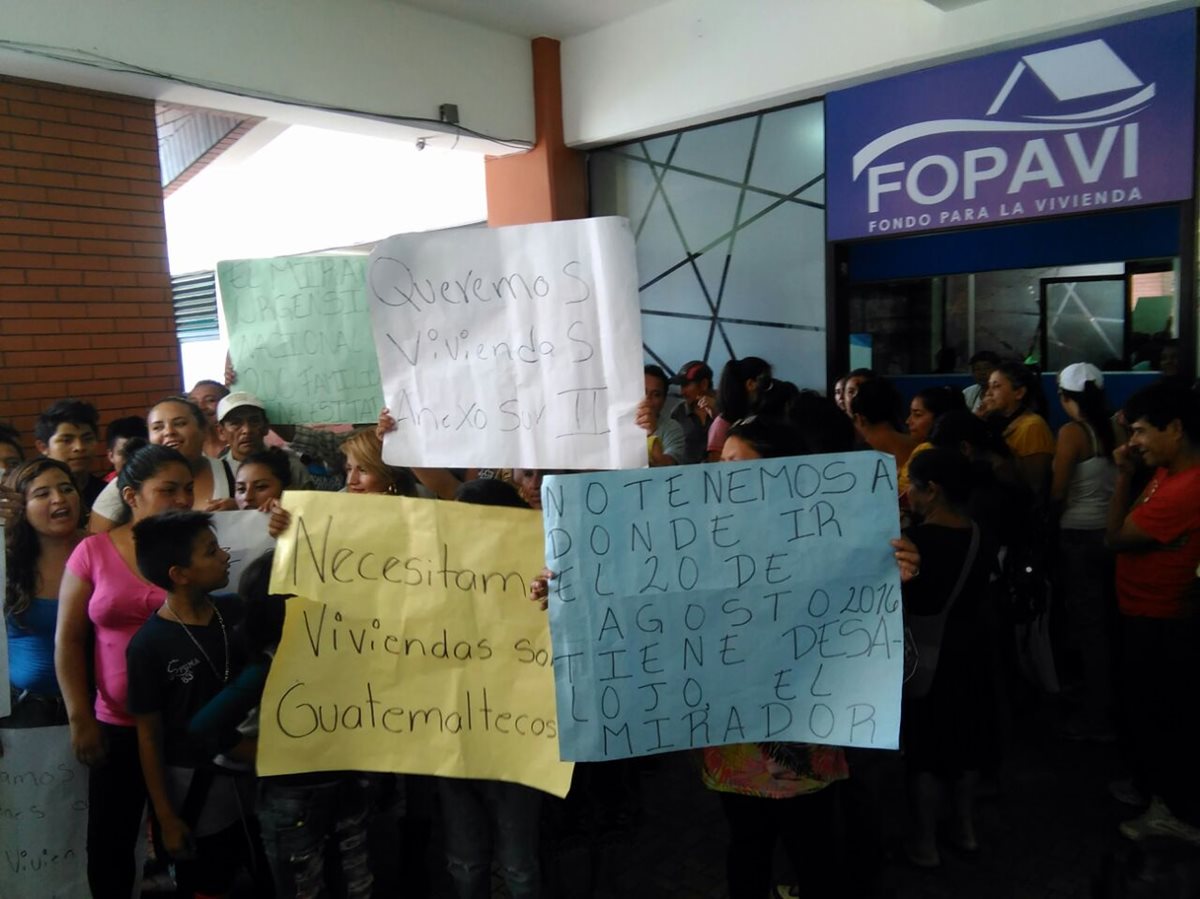 FOPAVI
FONDO PARA LA VIVIENDA
EL MIRA
URGENSI
NACIONAL
Queremos
Viviendas
Anexo Sur II
Necesitam
Viviendas so
Guatemaltecos
NO TENEMOS A
DONDE IR
EL 20 DE
AGOSTO 2016
TIENE DESA-
LOJO, EL
MIRADOR
amos
Vivien